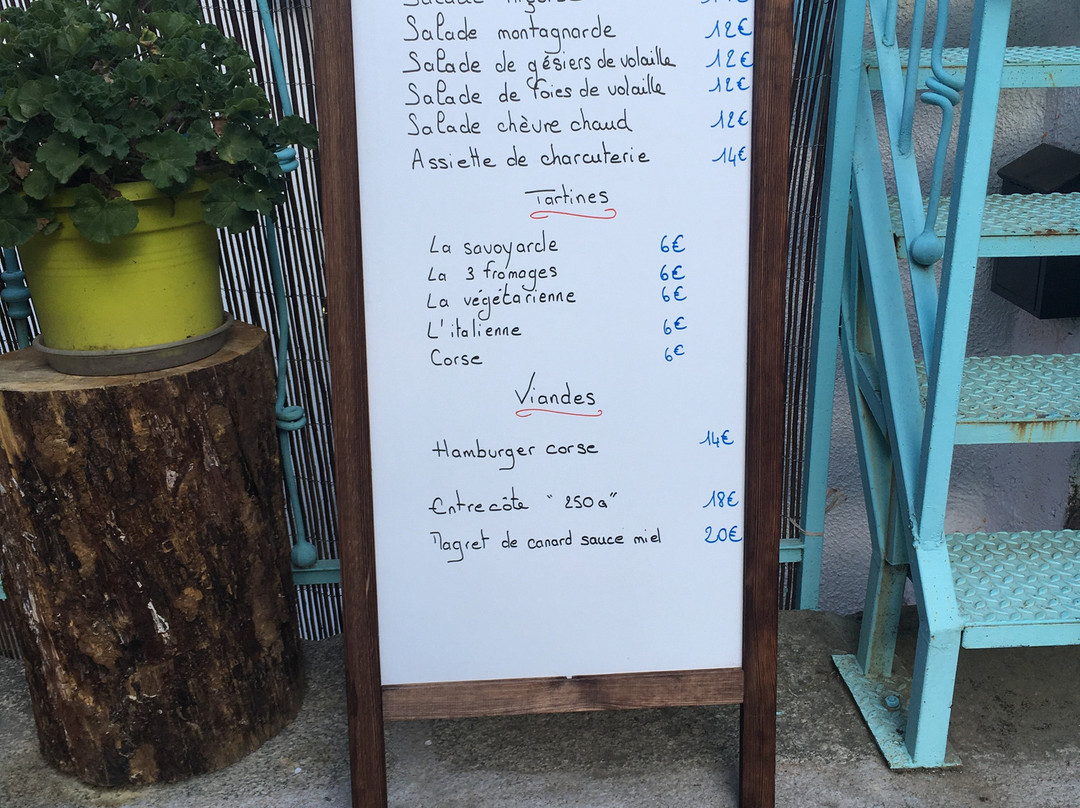 Salade
Salade montagnarde 12€
Salade de gésiers de volaille 12€
Salade de foies de volaille 12€
Salade chèvre chaud 12€
Assiette de charcuterie 14€
Tartines
La savoyarde 6€
La 3 fromages 6€
La végétarienne 6€
L'italienne 6€
Corse 6€
Viandes
Hamburger corse 14€
Entrecôte "250g" 18€
Magret de canard sauce miel 20€